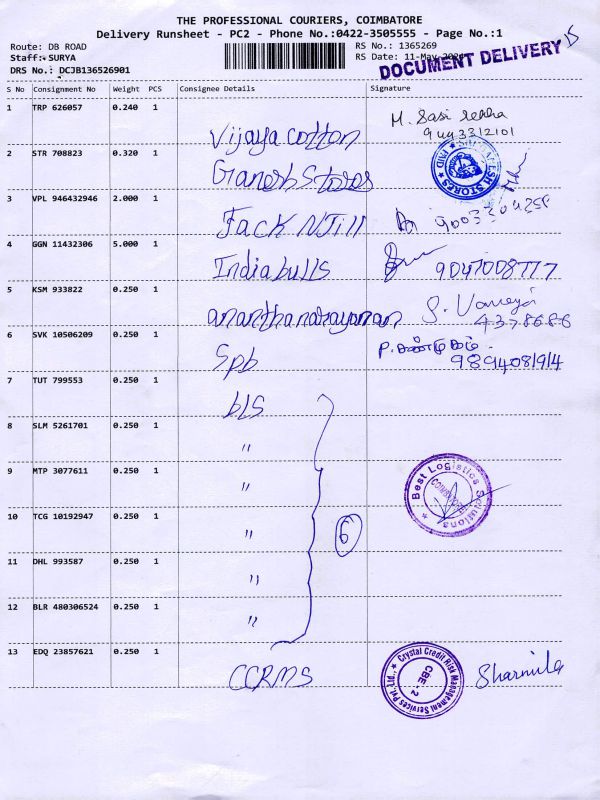 THE PROFESSIONAL COURIERS, COIMBATORE
Delivery Runsheet - PC2 - Phone No.:0422-3505555 - Page No.:1
Route: DB ROAD
Staff: SURYA
DRS No.: DCJB136526901
RS No.: 1365269
RS Date: 11-May
DOCUMENT DELIVERY
S No Consignment No Weight PCS Consignee Details Signature
1 TRP 626057 0.240 1 Vijaya cotton M. Sasi rekha
2 STR 708823 0.320 1 Ganesh Stores GANESH STORES PAID
3 VPL 946432946 2.000 1 Jack N Jill
4 GGN 11432306 5.000 1 Indiabulls 9047008777
5 KSM 933822 0.250 1 ananthanarayanan 4378686
6 SVK 10506209 0.250 1 Spb 9894081914
7 TUT 799553 0.250 1 bls
8 SLM 5261701 0.250 1 "
9 MTP 3077611 0.250 1 " Best Logistics Solutions COIMBATORE
10 TCG 10192947 0.250 1 " 6
11 DHL 993587 0.250 1 "
12 BLR 480306524 0.250 1 "
13 EDQ 23857621 0.250 1 CCRMS Crystal Credit Risk Management Services Pvt. Ltd., CBE - 2 Sharmila